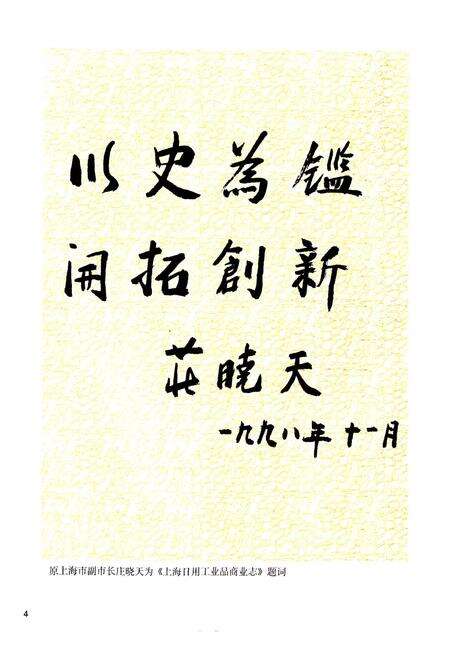 以史為鑑
開拓創新
莊曉天
一九九八年十一月
原上海市副市长庄晓天为《上海日用工业品商业志》题词
4